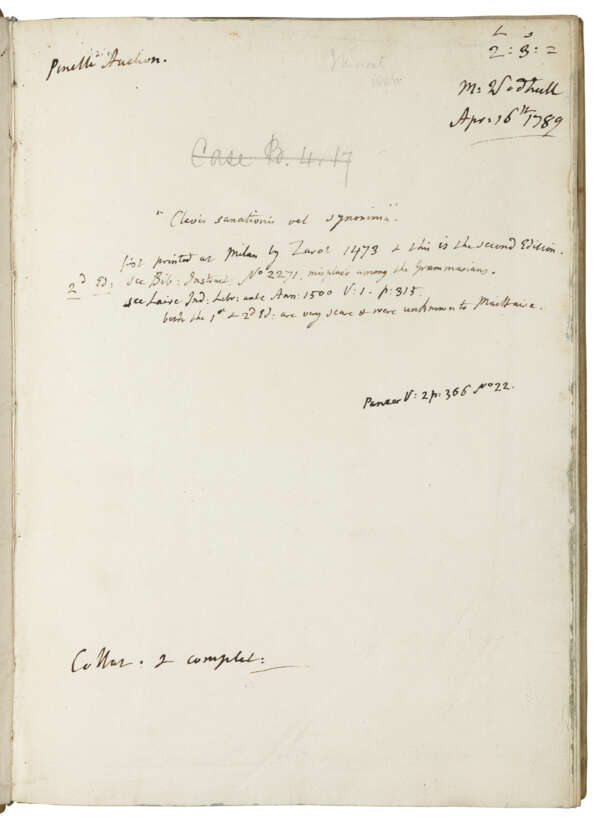 L s
2 : 3 : =
Pinelli Auction.
M: Wodhull
Apr: 16th 1789
Case B. 4.17
"Clavis sanationis vel synonima".
first printed at Milan by Zarot 1473 & this is the second Edition.
2d Ed: see Bib: Instruct: No 2271. misplac'd among the Grammarians.
see Laire Ind: Libr: ab Ann: 1500 V: 1. p: 315.
both the 1st & 2d Ed: are very scarce & were unknown to Maittaire.
Panzer V: 2 p: 366 No 22.
Collat. & complet: